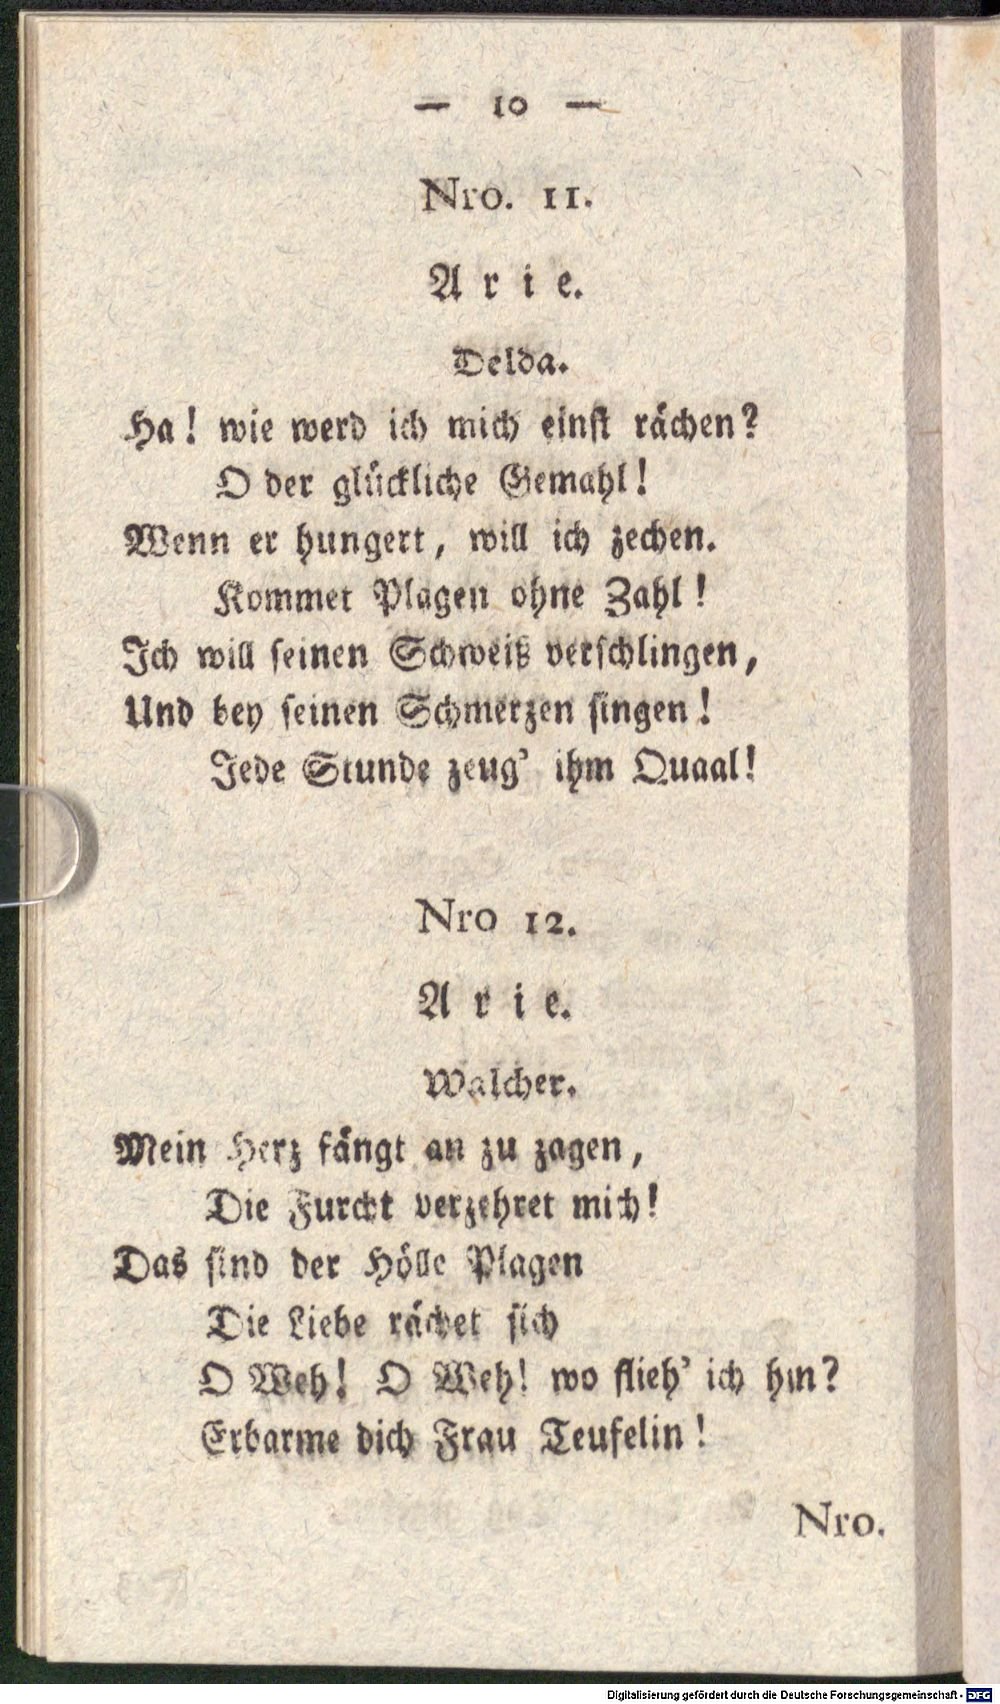 — 10 —
Nro. 11.
Arie.
Delda.
Ha! wie werd ich mich einst rächen?
O der glückliche Gemahl!
Wenn er hungert, will ich zechen.
Kommet Plagen ohne Zahl!
Ich will seinen Schweiß verschlingen,
Und bey seinen Schmerzen singen!
Jede Stunde zeug' ihm Quaal!
Nro 12.
Arie.
Walcher.
Mein Herz fängt an zu zagen,
Die Furcht verzehret mich!
Das sind der Hölle Plagen
Die Liebe rächet sich
O Weh! O Weh! wo flieh' ich hin?
Erbarme dich Frau Teufelin!
Nro.
Digitalisierung gefördert durch die Deutsche Forschungsgemeinschaft - DFG